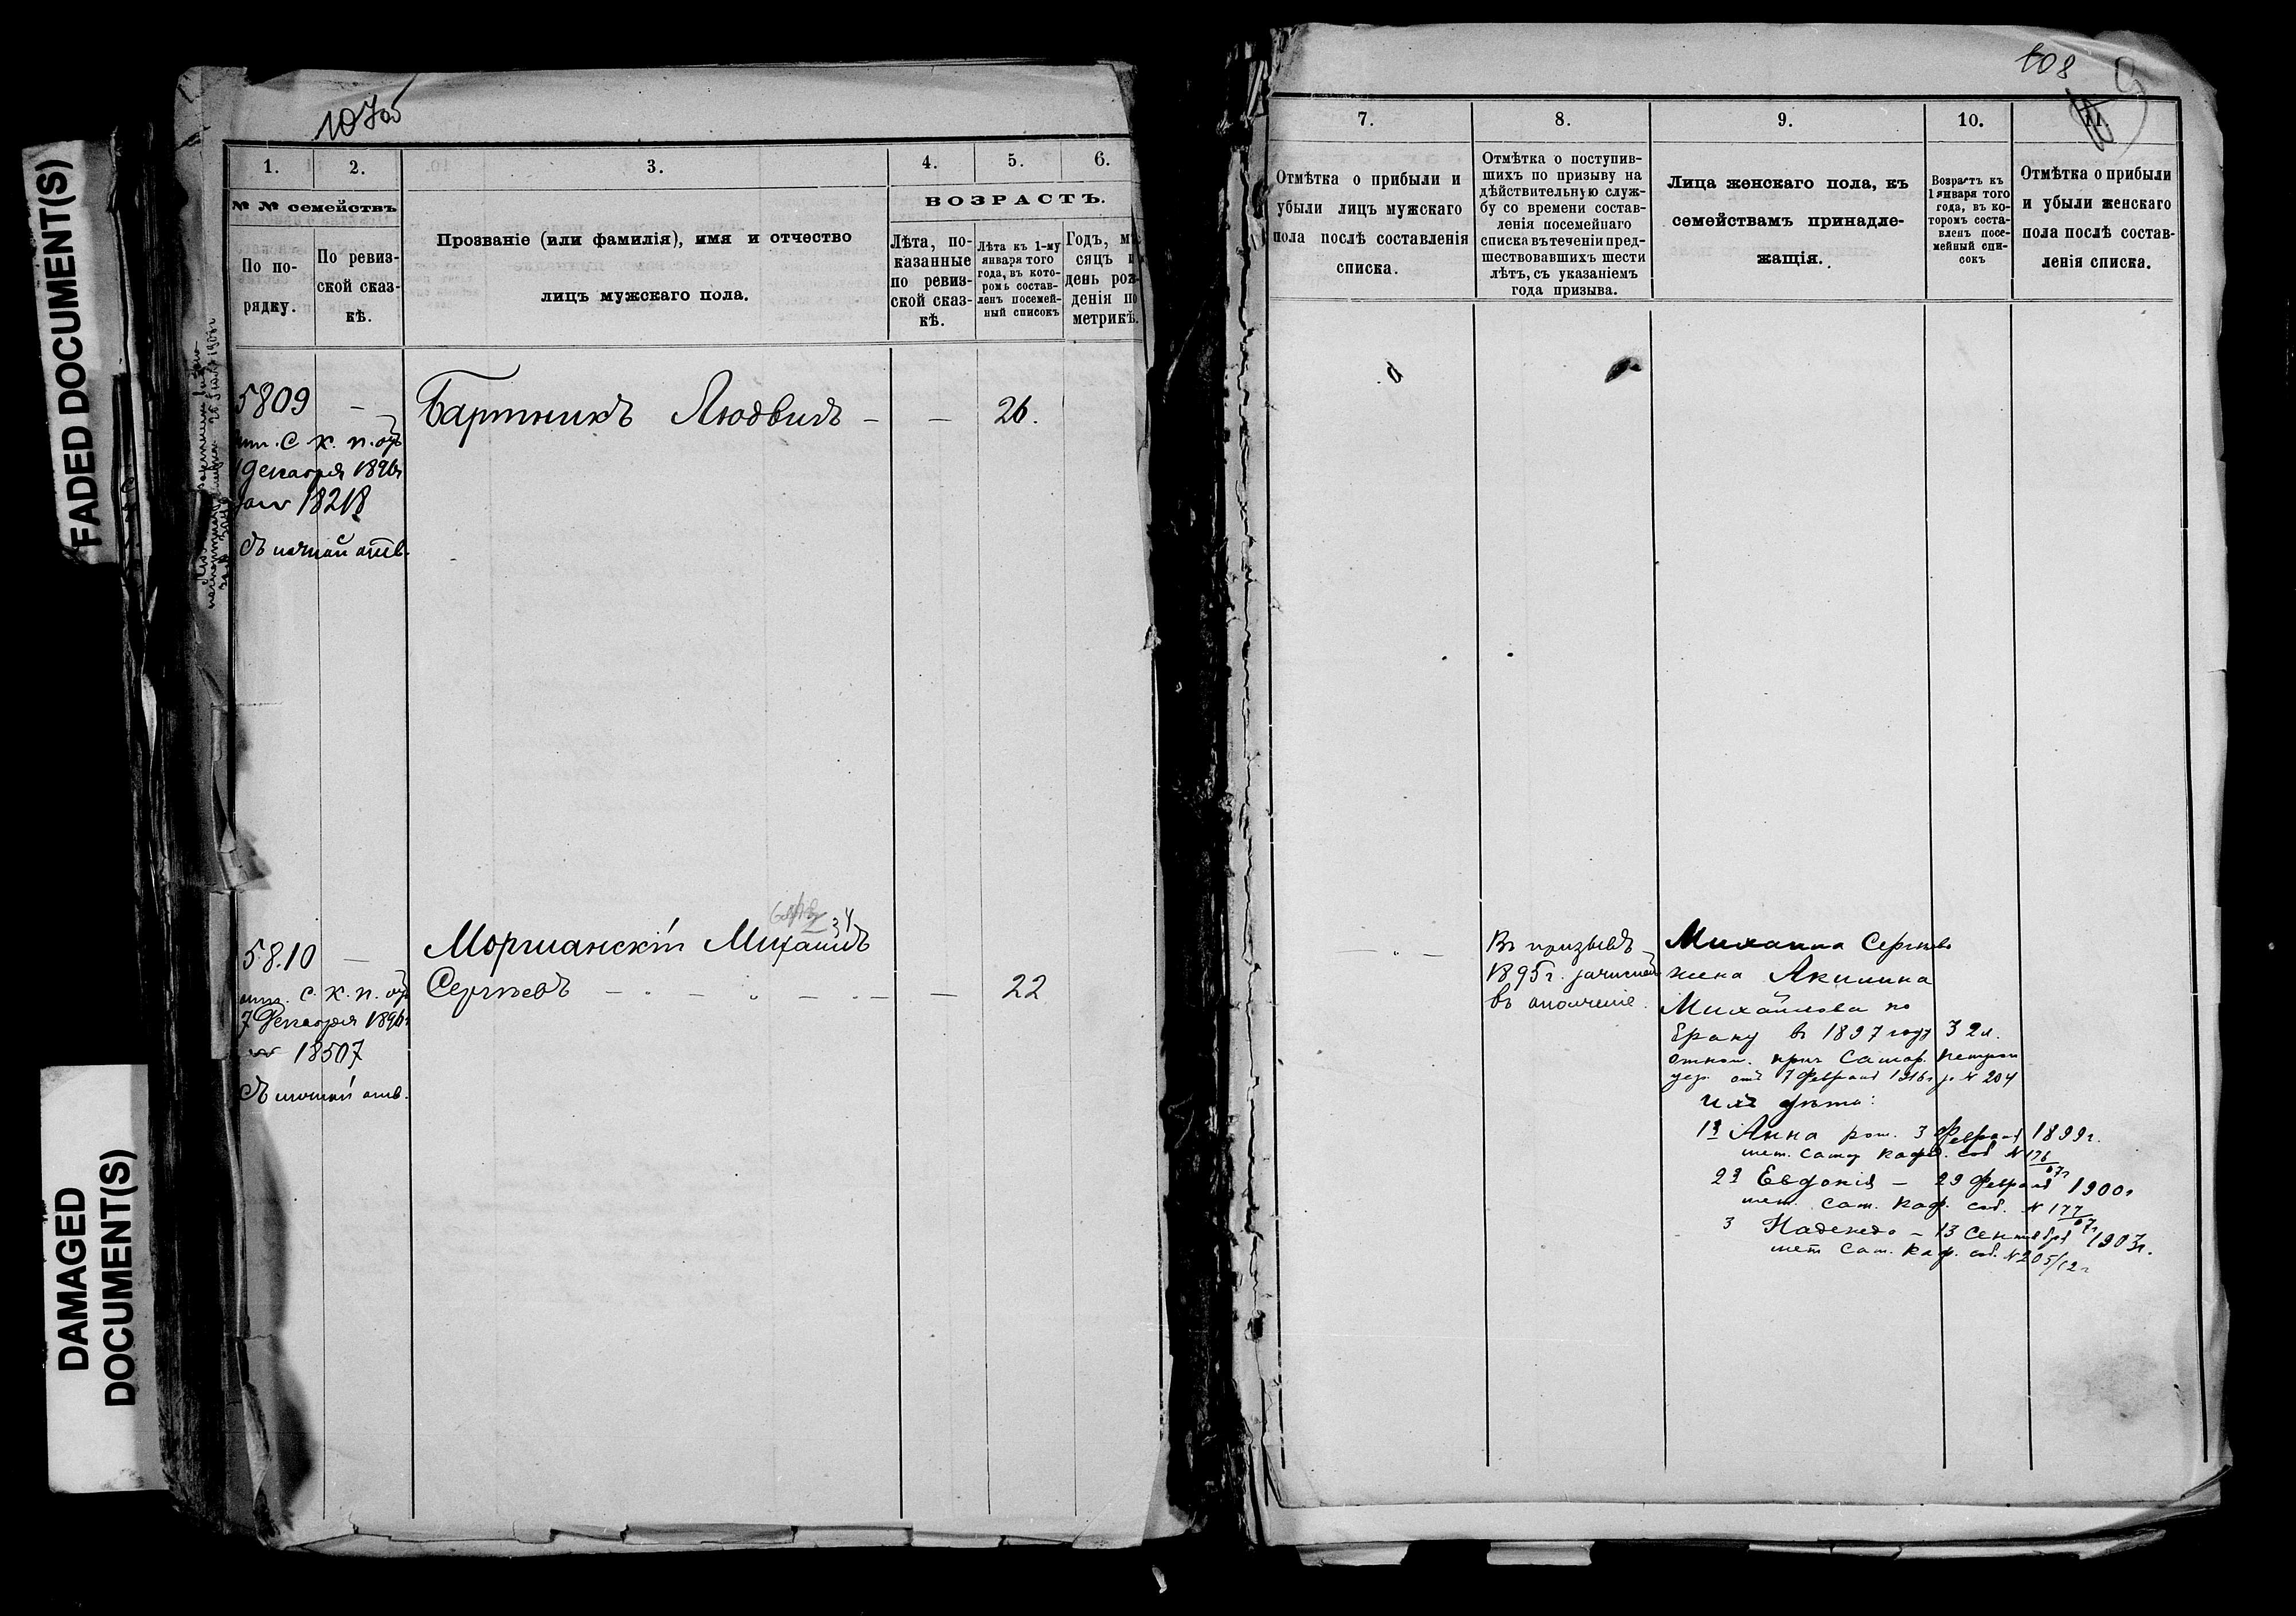 FADED DOCUMENT(S)
DAMAGED
DOCUMENT(S)
107об
1.
2.
3.
4.
5.
6.
№ № семействъ
По по-
рядку.
По ревиз-
ской сказ-
кѣ.
Прозваніе (или фамилія), имя и отчество
лицъ мужскаго пола.
ВОЗРАСТЪ.
Лѣта, по-
казанные
по ревиз-
ской сказ-
кѣ.
Лѣта къ 1-му
января того
года, въ кото-
ромъ состав-
ленъ посемей-
ный списокъ
Годъ, мѣ
сяцъ и
день рож-
денія по
метрикѣ.
5809 —
Бартникъ Людвигъ — — 26.
С. К. П. отъ
декабря 1896г
18218
съ ночной отв.
5810 —
Моршанскій Михаилъ
Сергѣевъ — — 22
С. К. П. отъ
7 декабря 1896г
18507
108
7.
8.
9.
10.
11.
Отмѣтка о прибыли и
убыли лицъ мужскаго
пола послѣ составленія
списка.
Отмѣтка о поступив-
шихъ по призыву на
дѣйствительную служ-
бу со времени состав-
ленія посемейнаго
списка въ теченіи пред-
шествовавшихъ шести
лѣтъ, съ указаніемъ
года призыва.
Лица женскаго пола, къ
семействамъ принадле-
жащія.
Возрастъ къ
1 января того
года, въ ко-
торомъ соста-
вленъ посе-
мейный спи-
сокъ
Отмѣтка о прибыли
и убыли женскаго
пола послѣ состав-
ленія списка.
Въ призывъ
1895г. зачисленъ
въ ополченіе.
Михаила Сергѣева
жена Акилина
Михайлова по
браку въ 1897 году 32л.
отнош. прич Самар. Петроп
цер. отъ 7 Февраля 1916г за № 204
Ихъ дѣти:
1я Анна рож. 3 Февраля 1899г.
мет. Самар Каф. соб № 176/07г
2я Евдокія — 29 Февраля 1900г
мет. Сам. Каф. соб. № 177/07г
3 Надежда — 13 Сентября 1903г.
мет Сам. Каф. соб. № 205/12г